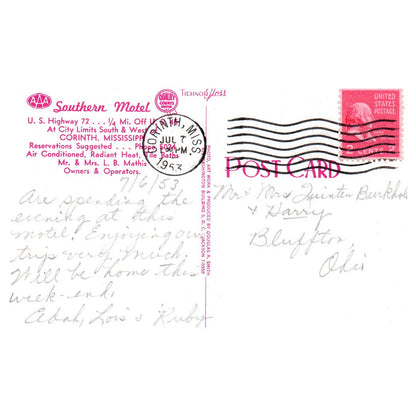 AAA
Southern Motel
QUALITY COURTS
U. S. Highway 72 . . . ¼ Mi. Off U. S. 45
At City Limits South & West
CORINTH, MISSISSIPPI
Reservations Suggested . . . Phone 5024
Air Conditioned, Radiant Heat, Tile Baths
Mr. & Mrs. L. B. Mathis
Owners & Operators.
7/6/53
Are spending the
evening at this
motel. Enjoying our
trip very much.
Will be home this
week-end.
Adah, Lois & Ruby
CORINTH, MISS.
JUL 7
PM
1953
UNITED
STATES
POSTAGE
POST CARD
Mr. & Mrs. Quinten Burkhol
& Harry
Bluffton,
Ohio